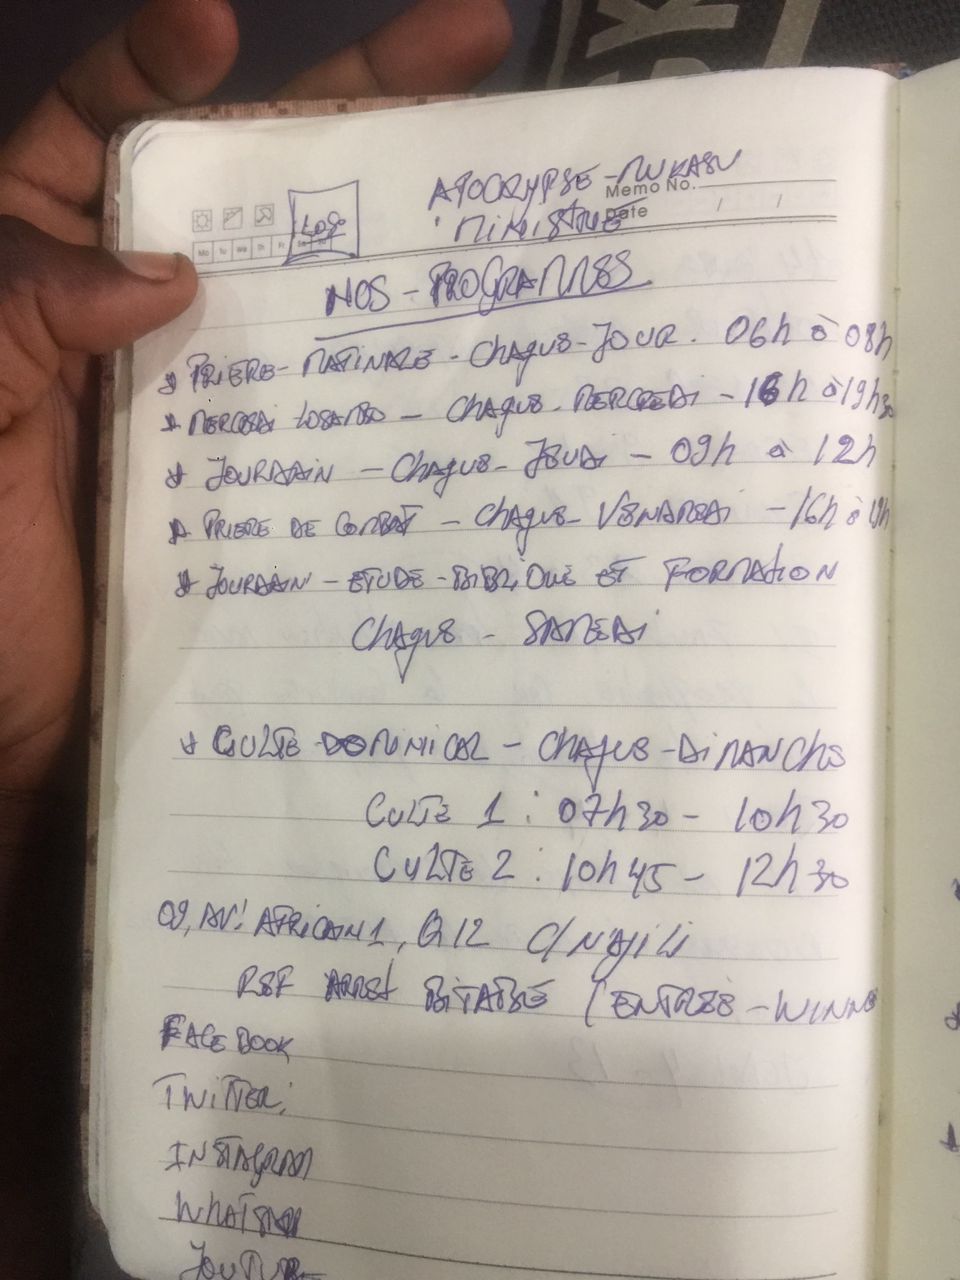 APOCRYPSE - MUKASU
Memo No.
MINISTRE
Date / /
Mo Tu We Th Fr Sa
LOGO
NOS - PROGRAMMES
PRIERE - MATINALE - CHAQUE - JOUR. 06h à 08h
MERCREDI LOSAMBO - CHAQUE - MERCREDI - 16h à 19h30
JOURDAIN - CHAQUE - JEUDI - 09h à 12h
PRIERE DE COMBAT - CHAQUE - VENDREDI - 16h à 19h
JOURDAIN - ETUDE - BIBLIQUE ET FORMATION
CHAQUE - SAMEDI
CULTE DOMINICAL - CHAQUE - DIMANCHE
CULTE 1 : 07h30 - 10h30
CULTE 2 : 10h45 - 12h30
09, AV: AFRICAIN 1, Q12 C/NDJILI
REF ARRET BITABE (ENTREE - WINNE
FACEBOOK
TWITTER:
INSTAGRAM
WHATSAPP
YOUTUBE